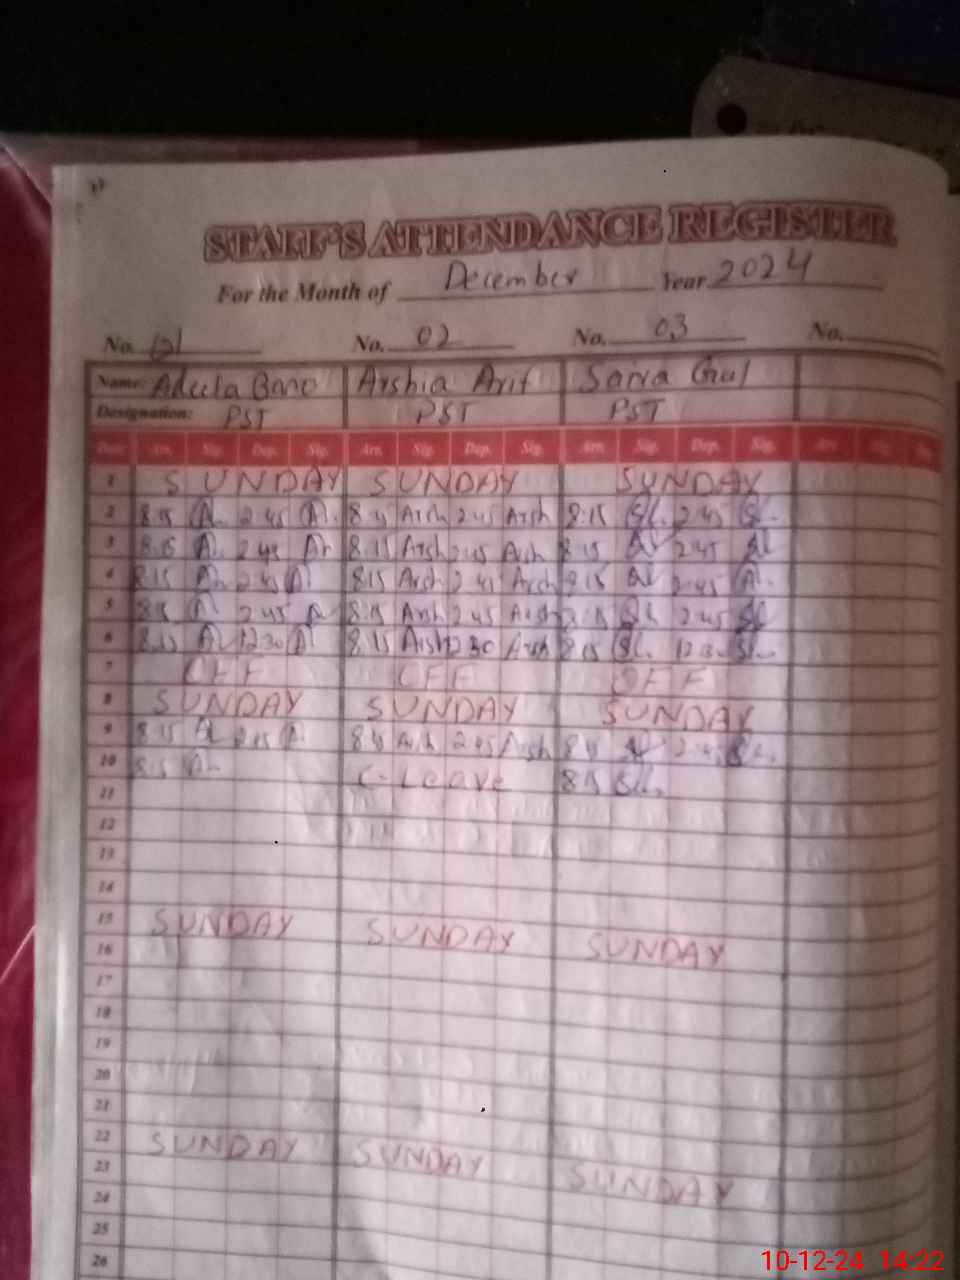 STAFF'S ATTENDANCE REGISTER
For the Month of December Year 2024
No. 01 No. 02 No. 03 No.
Name: Adeela Bano Arshia Arif Saria Gul
Designation: PST PST PST
Date Arr. Sig. Dep. Sig. Arr. Sig. Dep. Sig. Arr. Sig. Dep. Sig. Arr. Sig.
1 SUNDAY SUNDAY SUNDAY
2 8:15 2:45 8:15 Arsh 2:45 Arsh 8:15 2:45
3 8:15 2:45 8:15 Arsh 2:45 Arsh 8:15 2:45
4 8:15 2:45 8:15 Arsh 2:45 Arsh 8:15 2:45
5 8:15 2:45 8:15 Arsh 2:45 Arsh 8:15 2:45
6 8:15 12:30 8:15 Arsh 12:30 Arsh 8:15 12:30
7 OFF OFF OFF
8 SUNDAY SUNDAY SUNDAY
9 8:15 2:45 8:15 Arsh 2:45 Arsh 8:15 2:45
10 8:15 C-Leave 8:15
11
12
13
14
15 SUNDAY SUNDAY SUNDAY
16
17
18
19
20
21
22 SUNDAY SUNDAY SUNDAY
23
24
25
26
10-12-24 14:22